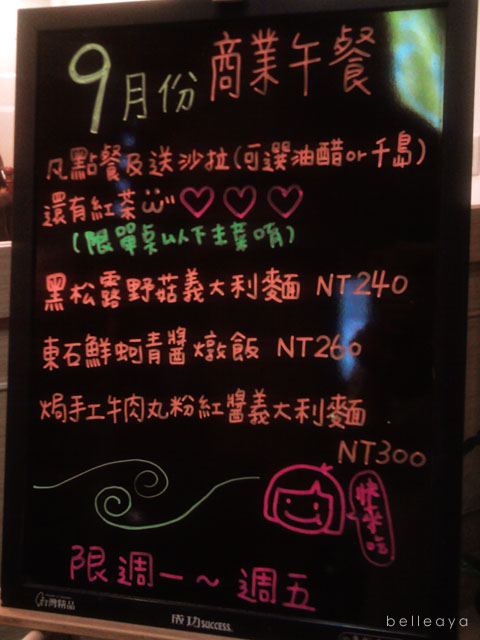 9月份 商業午餐
凡點餐及送沙拉(可選油醋or千島)
還有紅茶
(限單點以下主菜唷)
黑松露野菇義大利麵 NT240
東石鮮蚵青醬燉飯 NT260
焗手工牛肉丸粉紅醬義大利麵
NT300
快來吃
限週一～週五
台灣精品
成功 success
belleaya